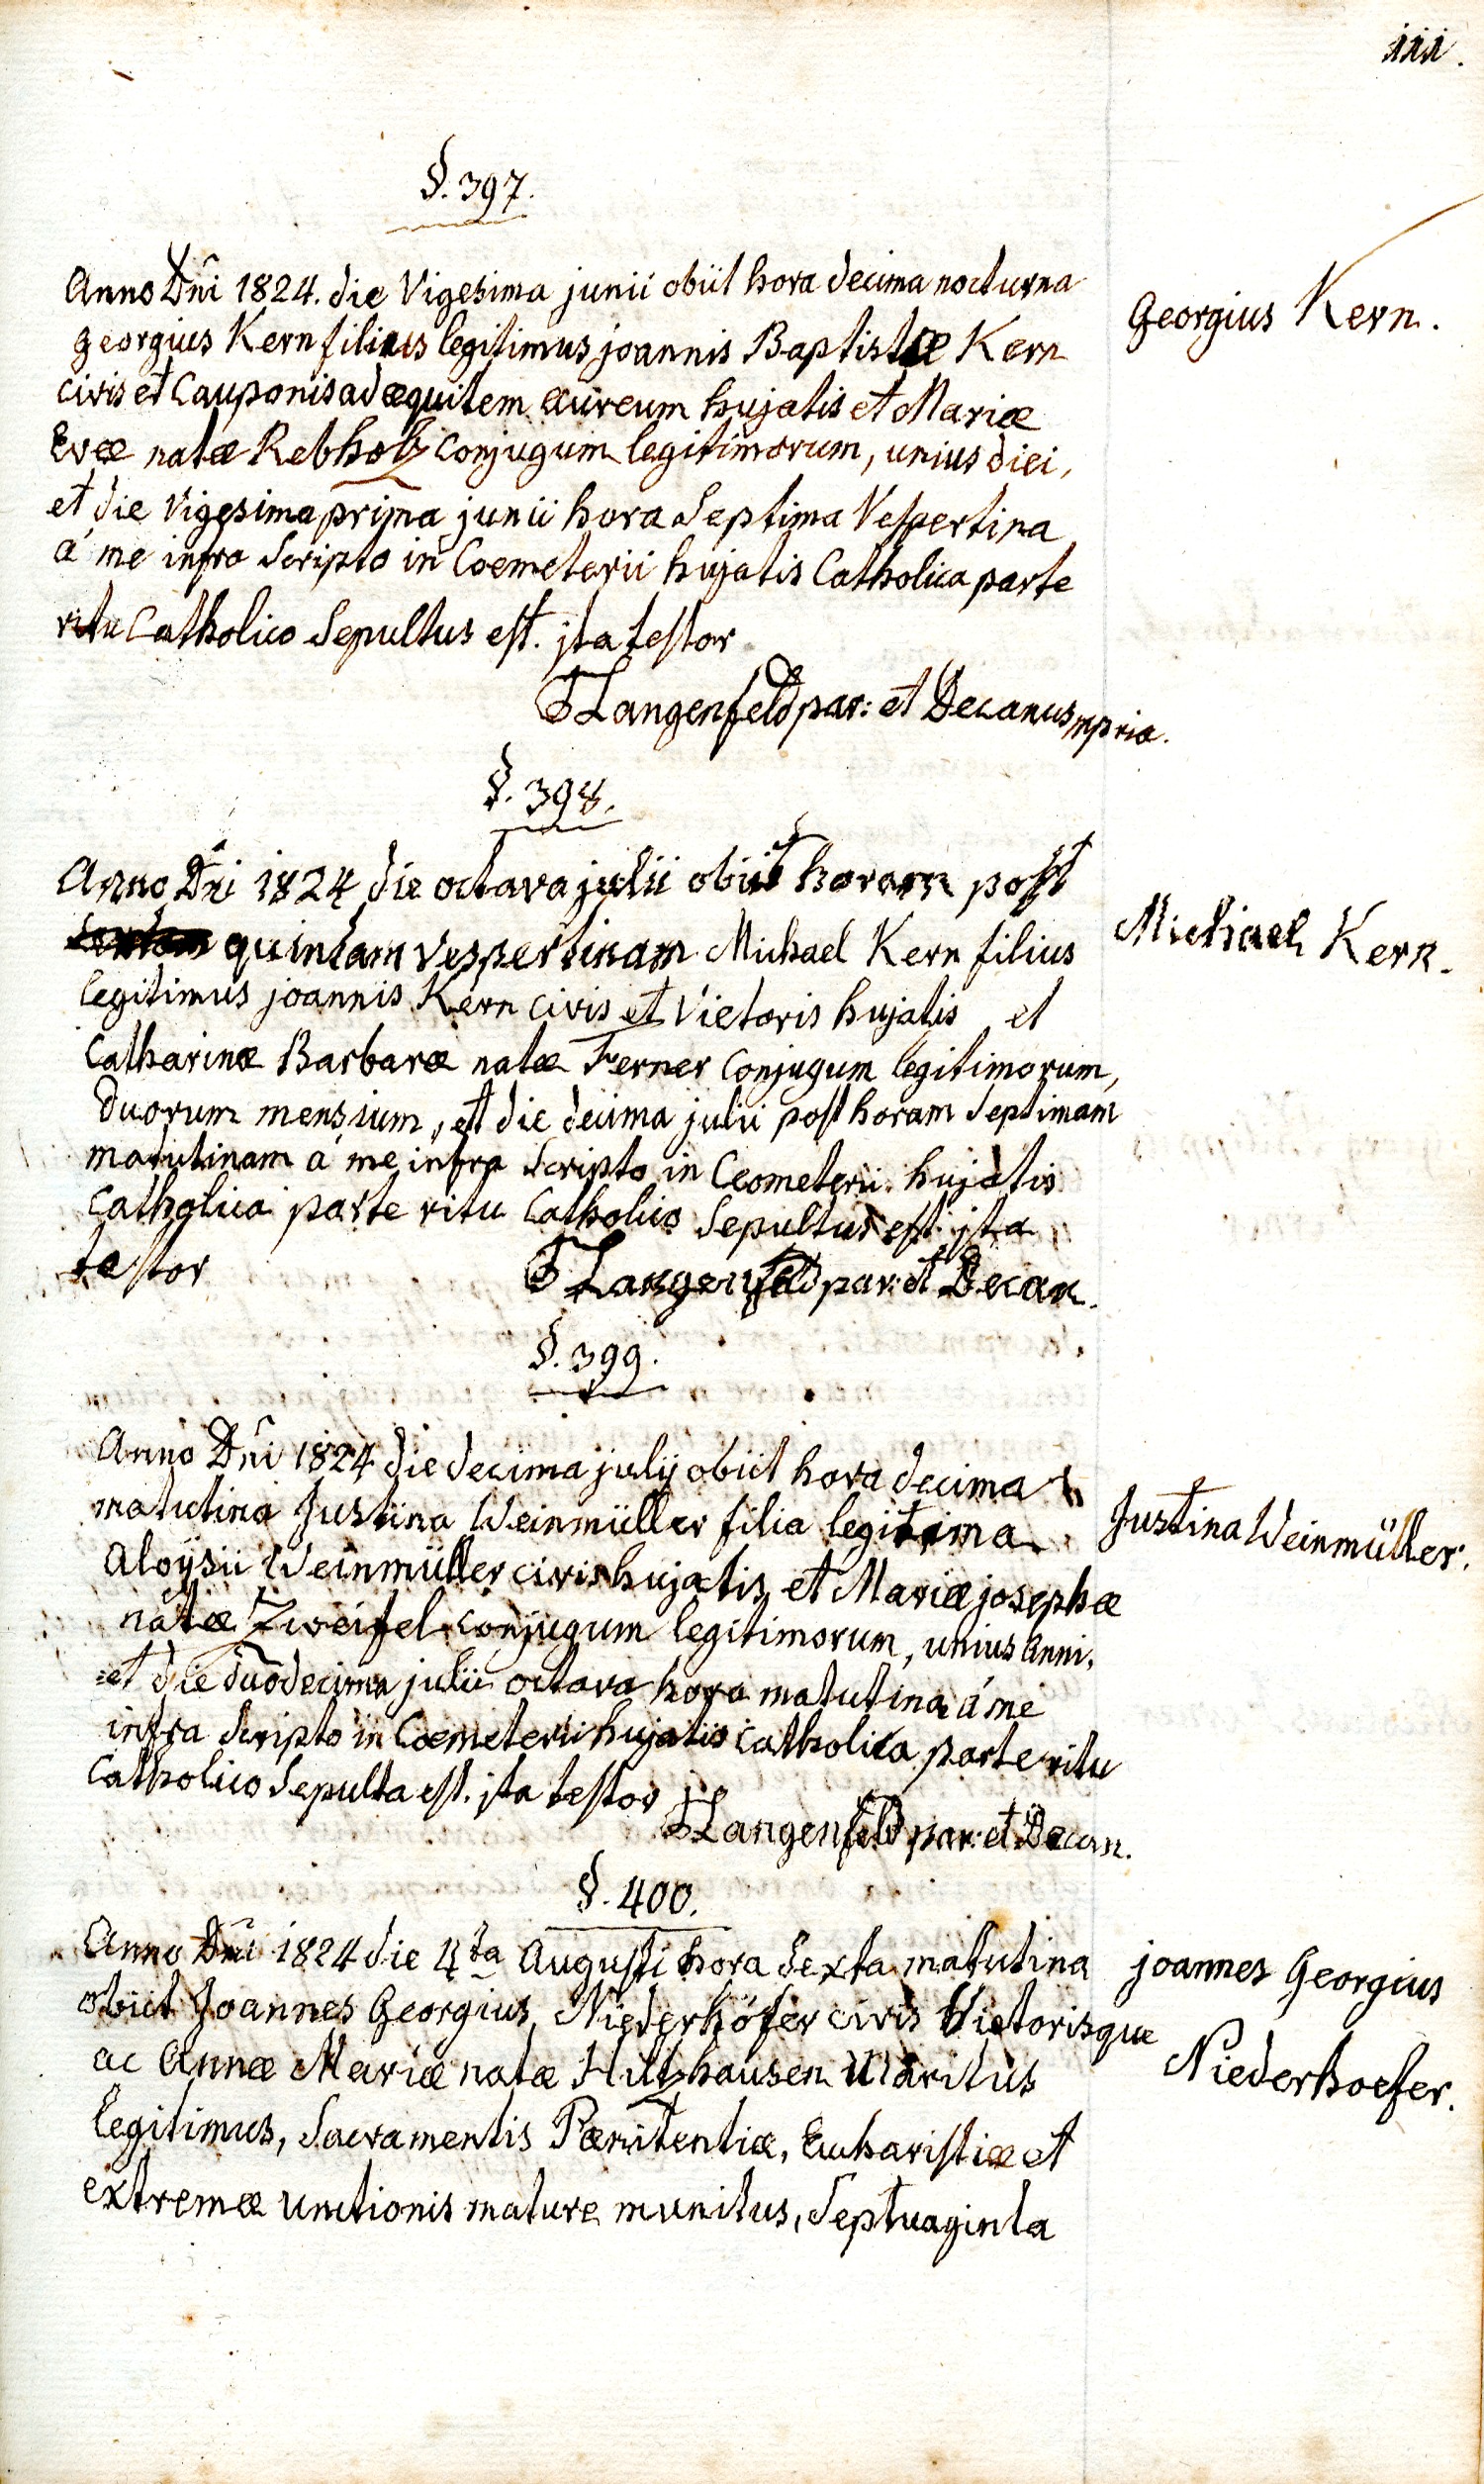 iii.
§. 397.
Anno Dñi 1824. die Vigesima junii obiit hora decima nocturna
georgius Kern filius legitimus joannis Baptistæ Kern
civis et Cauponis ad æquitem aureum hujatis et Mariæ
Evæ natæ Rebholz conjugum legitimorum, unius diei,
et die Vigesima prima junii hora Septima Vespertina
á me infra Scripto in Coemeterii hujatis Catholica parte
ritu Catholico Sepultus est. jta testor
Langenfeld par: et Decanus mpria.
Georgius Kern.
§. 398.
Anno Dñi 1824 die octava julii obiit horam post
quintam vespertinam Michael Kern filius
legitimus joannis Kern civis et Vietoris hujatis et
Catharinæ Barbaræ natæ Ferner Conjugum legitimorum,
duorum mensium, et die decima julii post horam Septimam
matutinam á me infra Scripto in Ceometerii hujatis
Catholica parte ritu Catholico Sepultus est. jta
testor
Langenfeld par: et Decan.
Michael Kern.
§. 399.
Anno Dñi 1824 die decima julij obiit hora decima
matutina Justina Weinmüller filia legitima
Aloÿsii Weinmüller civis hujatis et Mariæ josephæ
natæ Zweifel conjugum legitimorum, unius anni,
et die duodecima julii octava hora matutina á me
infra Scripto in Coemeterii hujatis Catholica parte ritu
Catholico Sepulta est. jta testor
Langenfeld par: et Decan.
Justina Weinmüller.
§. 400.
Anno Dñi 1824 die 4ta Augusti hora Sexta matutina
obiit Joannes Georgius Niederhöfer civis Vietorisque
ac Annæ Mariæ natæ Hilzhausen Maritus
legitimus, Sacramentis Pænitentiæ, Eucharistiæ et
extremæ unctionis mature munitus, Septuaginta
joannes Georgius
Niederhoefer.